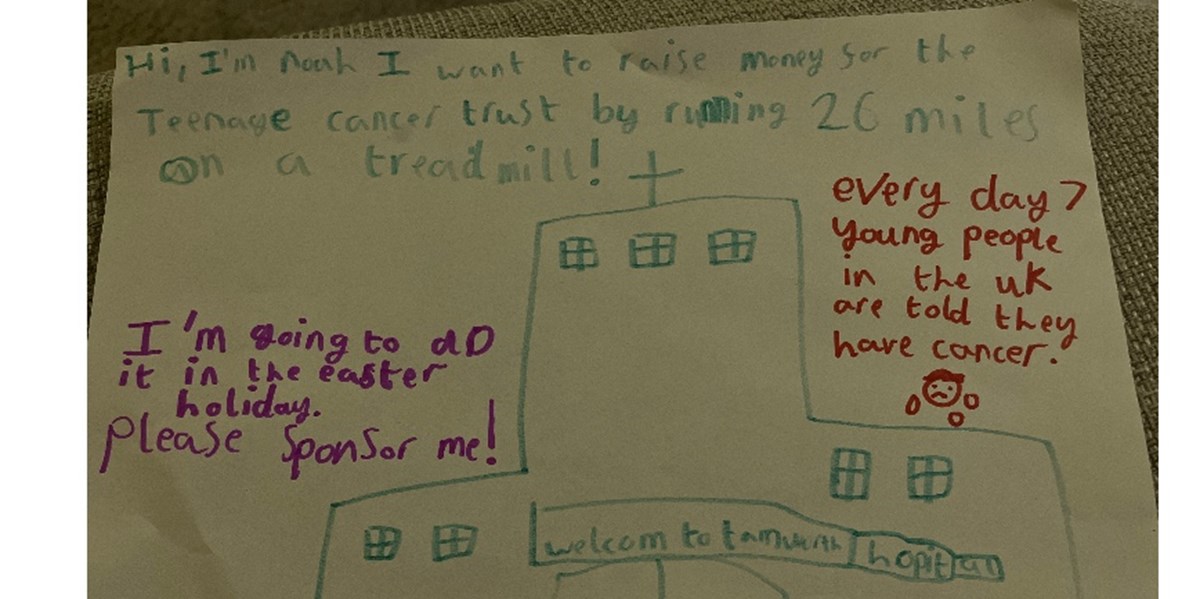 Hi, I'm Noah I want to raise money for the
Teenage cancer trust by running 26 miles
on a treadmill!
every day 7
young people
in the uk
are told they
have cancer.
I'm going to do
it in the easter
holiday.
please sponsor me!
welcom to tamwerth hopital